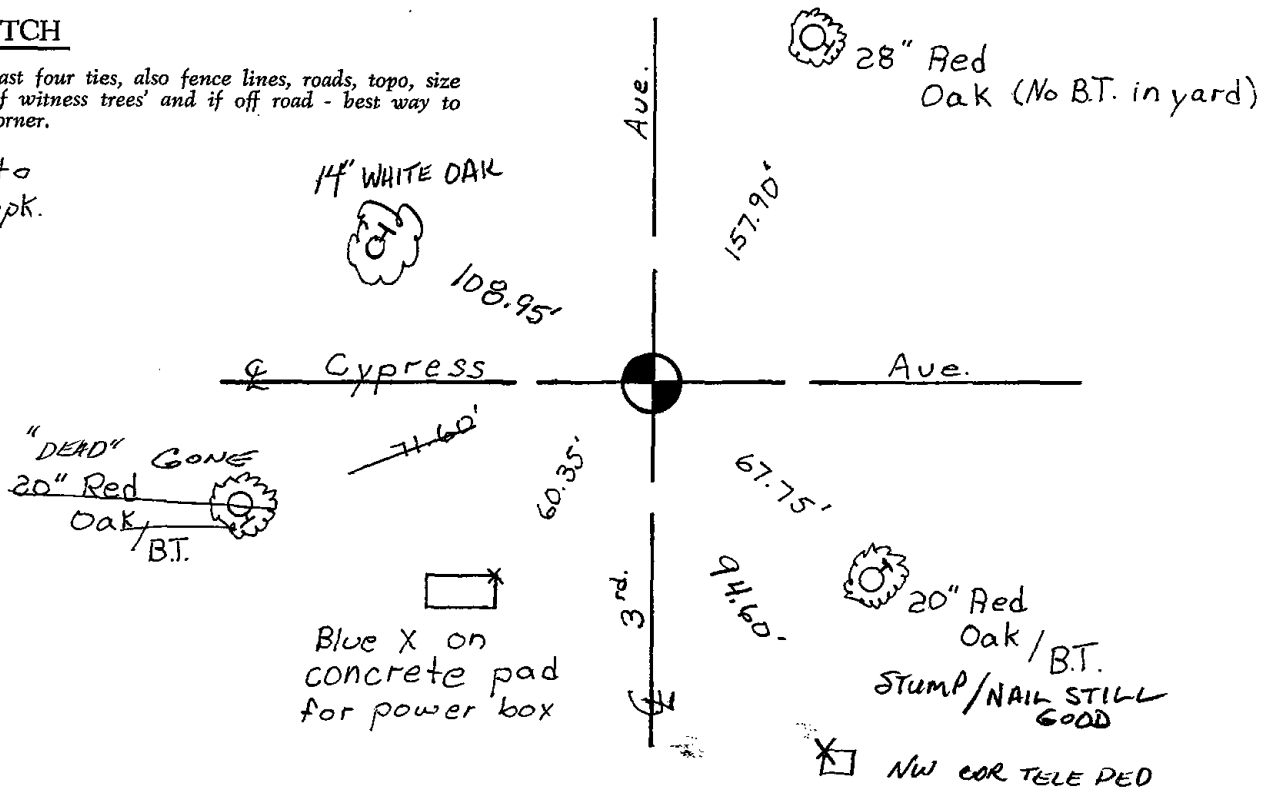 TCH
ast four ties, also fence lines, roads, topo, size
f witness trees' and if off road - best way to
orner.
to
pk.
14" WHITE OAK
108.95'
Ave.
28" Red
Oak (No B.T. in yard)
157.90'
℄ Cypress Ave.
"DEAD" GONE
20" Red
Oak/
B.T.
71.60'
60.35'
67.75'
94.60'
3rd.
℄
Blue X on
concrete pad
for power box
20" Red
Oak/
B.T.
STUMP/NAIL STILL
GOOD
NW COR TELE PED